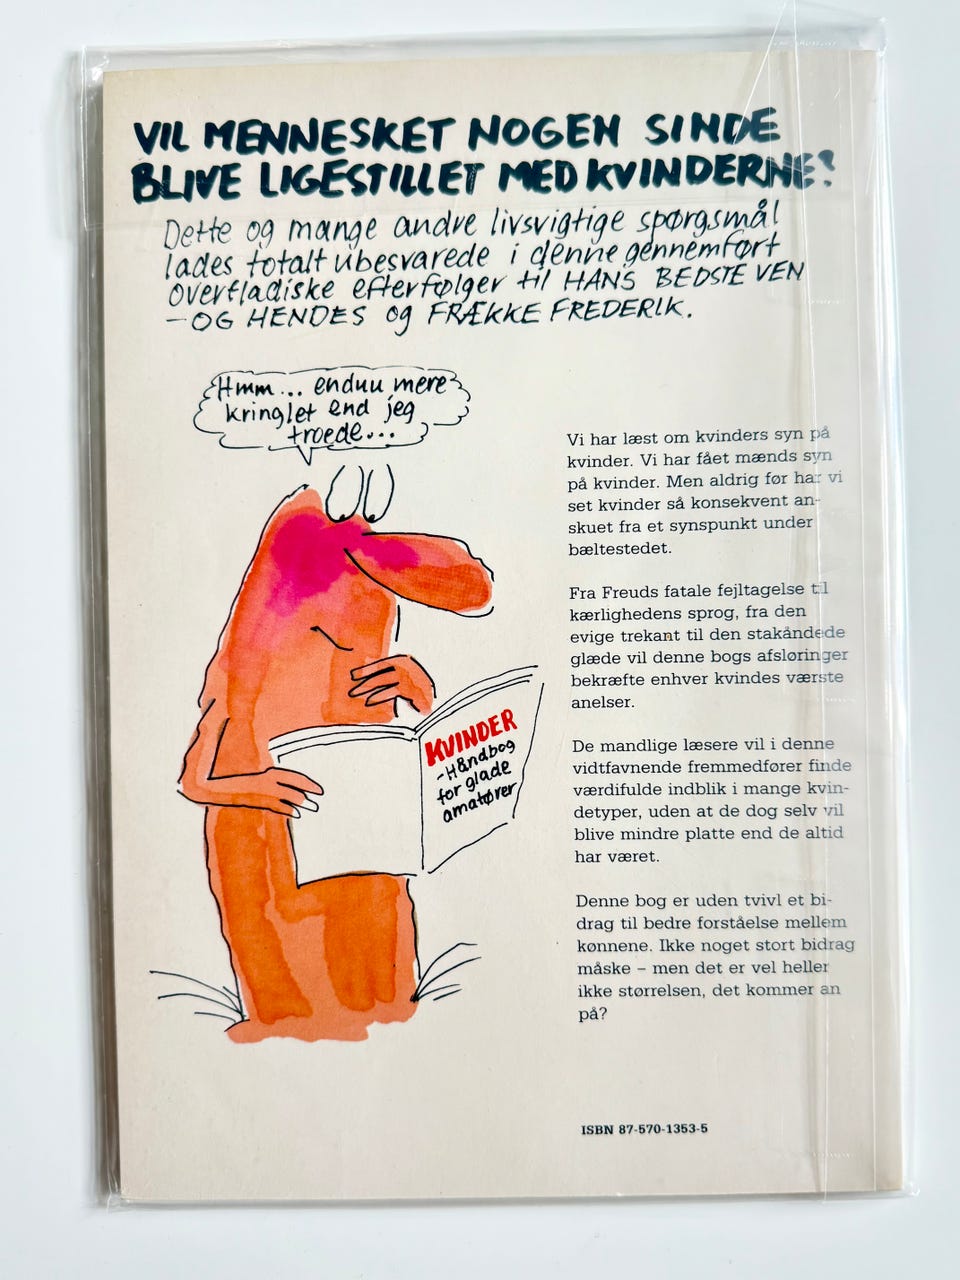 VIL MENNESKET NOGEN SINDE
BLIVE LIGESTILLET MED KVINDERNE?
Dette og mange andre livsvigtige spørgsmål
lades totalt ubesvarede i denne gennemført
overfladiske efterfølger til HANS BEDSTE VEN
– OG HENDES og FRÆKKE FREDERIK.
Hmm... enduu mere
kringlet end jeg
troede...
KVINDER
- Håndbog
for glade
amatører
Vi har læst om kvinders syn på
kvinder. Vi har fået mænds syn
på kvinder. Men aldrig før har vi
set kvinder så konsekvent an-
skuet fra et synspunkt under
bæltestedet.
Fra Freuds fatale fejltagelse til
kærlighedens sprog, fra den
evige trekant til den stakåndede
glæde vil denne bogs afsløringer
bekræfte enhver kvindes værste
anelser.
De mandlige læsere vil i denne
vidtfavnende fremmedfører finde
værdifulde indblik i mange kvin-
detyper, uden at de dog selv vil
blive mindre platte end de altid
har været.
Denne bog er uden tvivl et bi-
drag til bedre forståelse mellem
kønnene. Ikke noget stort bidrag
måske – men det er vel heller
ikke størrelsen, det kommer an
på?
ISBN 87-570-1353-5